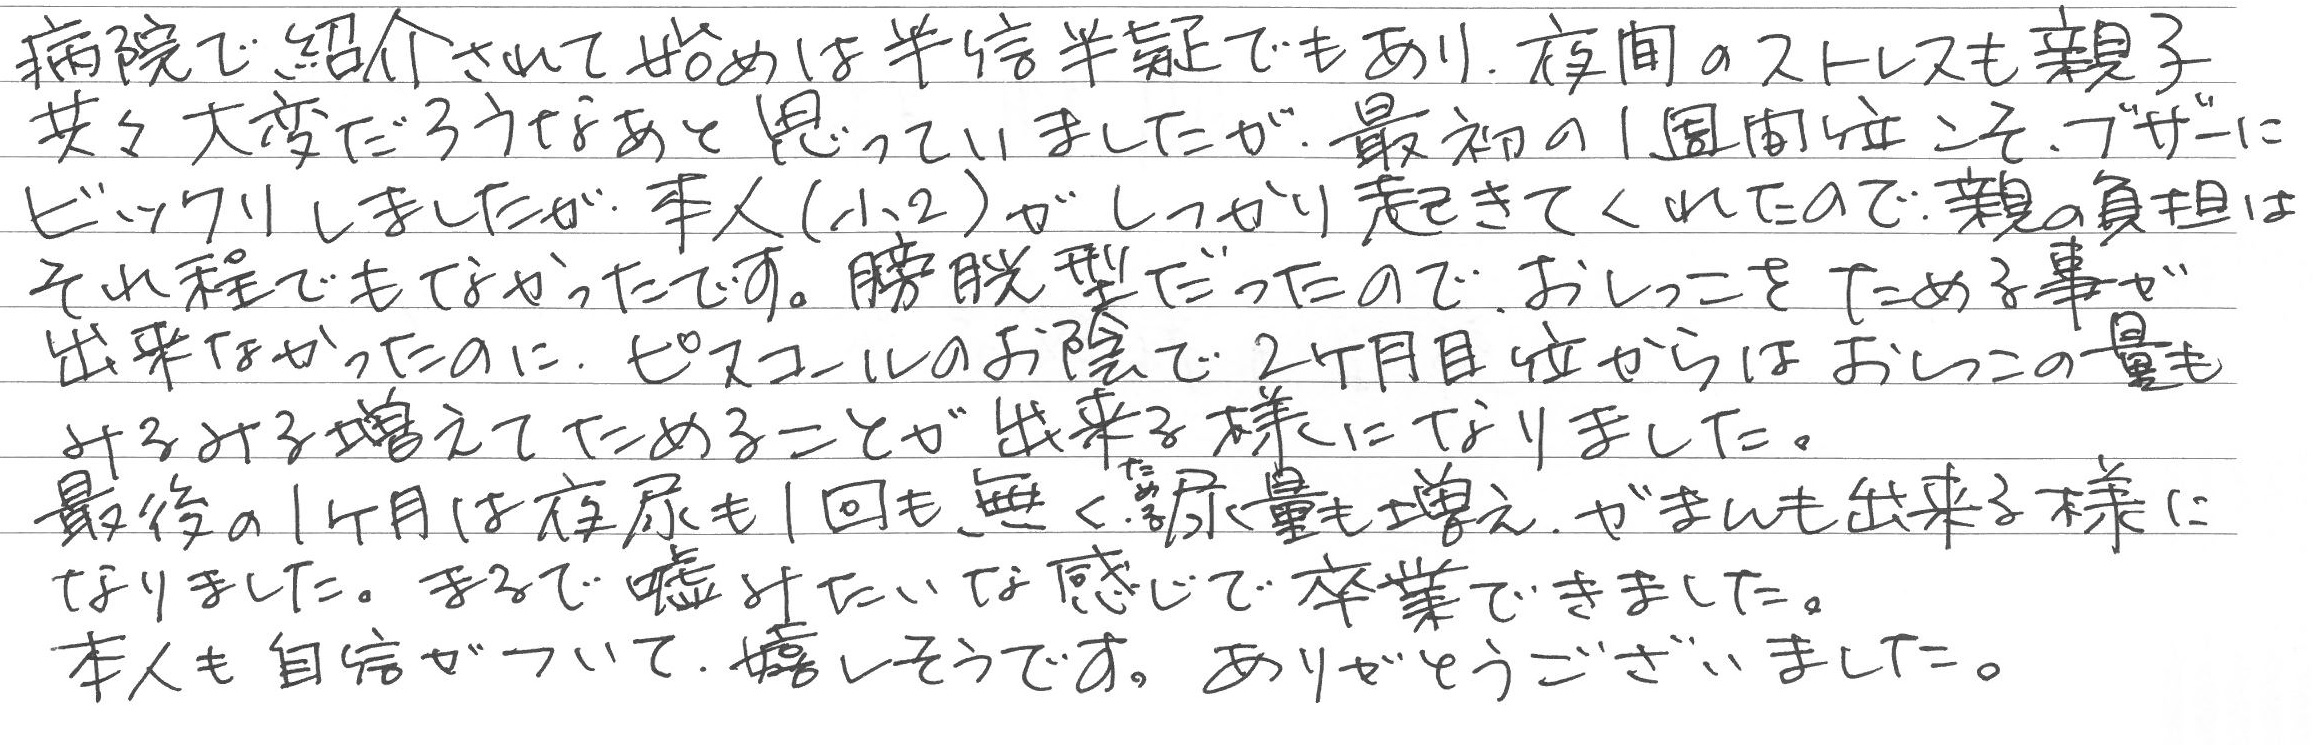 病院で紹介されて始めは半信半疑でもあり、夜間のストレスも親子
共々大変だろうなあと思っていましたが、最初の1週間位こそ、ブザーに
ビックリしましたが、本人(小2)がしっかり起きてくれたので、親の負担は
それ程でもなかったです。膀胱型だったので、おしっこをためる事が
出来なかったのに、ピスコールのお陰で2ケ月目位からはおしっこの量も
みるみる増えてためることが出来る様になりました。
最後の1ケ月は夜尿も1回も無く、ためる尿量も増え、がまんも出来る様に
なりました。まるで嘘みたいな感じで卒業できました。
本人も自信がついて、嬉しそうです。ありがとうございました。